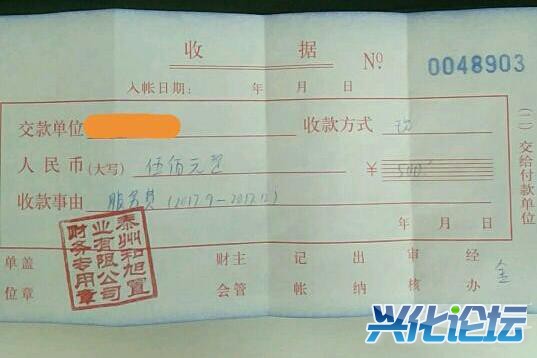 收 据 Nº 0048903
入帐日期: 年 月 日
交款单位 收款方式 现
人民币(大写) 伍佰元整 ¥ 500
收款事由 服务费(2017.9—2017.12)
年 月 日
(二)交给付款单位
单盖 财主 记 出 审 经
位章 会管 帐 纳 核 办
金
泰州和旭置
业有限公司
财务专用章
兴化论坛